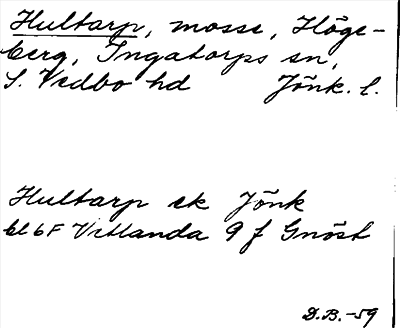 Hultarp, mosse, Höge-
berg, Ingatorps sn,
S. Vedbo hd Jönk. l.
Hultarp ek Jönk
bl 6F Vetlanda 9 f Gnöst
D.B.-59